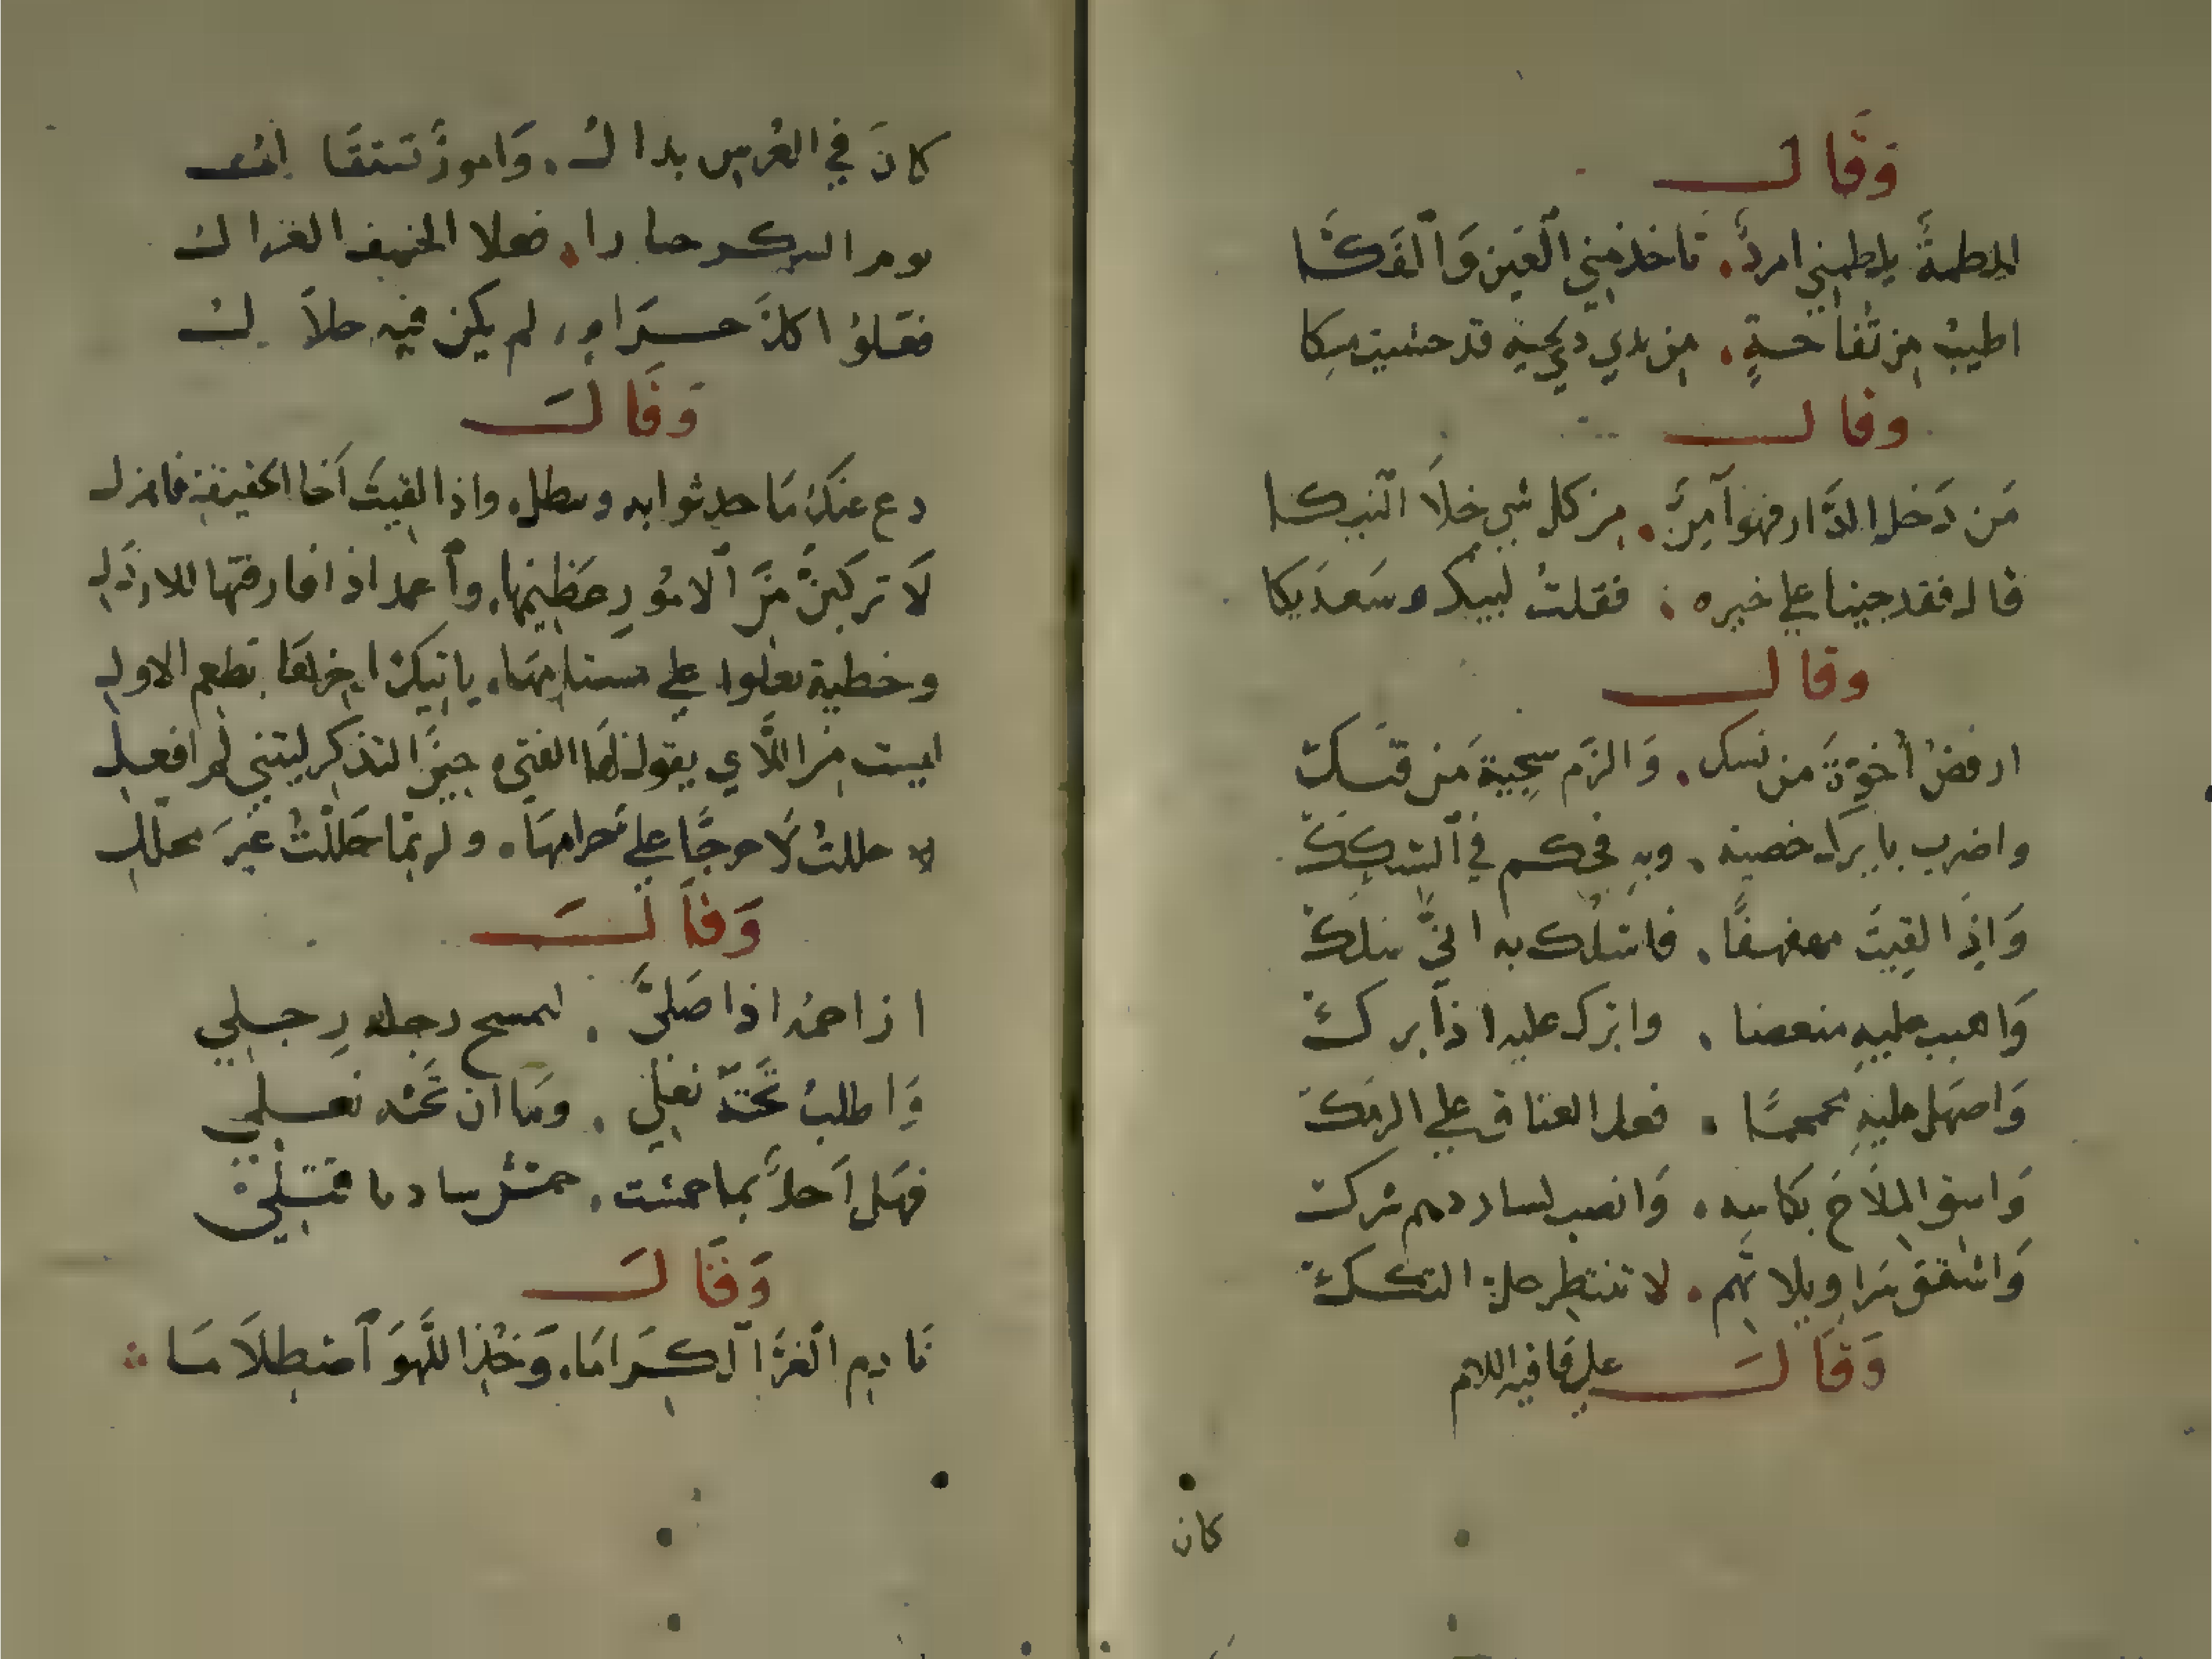 وَقَال
للطمةً يلطمني امردٌ. تاخذ مني الْعَين وَالْفَكَّا
اطيبُ من تفاحةٍ. من يدي ذي لحية قد حشيت مسكا
وقال
مَن دَخل الدَّار فهو آمِنٌ. من كل شي خلَا النيكا
قال فقد جينا علي خبره فقلتُ لبيك وسَعدَيكا
وقال
ارفضْ أُخوّةَ من نسك. وَالزم سجيةَ من فتك
واضرب باير خصية. وبهِ فحكم في التكك
وَاِذَا لقيتَ مهفهفًا. فاسلك به اني سلك
وَاهبب عليهِ منعضا. وابرك عليه اذا برك
وَاصهل عليهِ محمحمًا. فعل العتاق علي الرمك
وَاسق الملَاحَ بكاسه. وَانصب لسادرهم شرك
وَاشقق سراويلاتهم. لا تنتظر حل التكك
وَقَال علي قافية اللام
كان
كانَ في العُرس بدال. وَاموزٌ تتقَّا
يوم السكر صارا. فعلا الخفيف الغزال
فقلوُا كلنَ حَرَام، لم يكن فيهِ حلَال
وَقَال
دع عنكَ مَا حدثوا به وبطل. واذا لقيتَ اَخا الحقيقة فاهزل
لَا تركبنَّ مِنَ الامُورِ حَظيمها. وآعمد اذا فارقتها للارذَل
وخطية تعلوا علي مستامهَا. ياتيكَ اخرهَا بطعم الاول
ليست من اللَّاي يقول لهَا الفتي حينَ التذكر ليتني لم افعل
حللتُ لَا حرجًا علي حَرامهَا. ولربمَا حَلَّلْتُ غيرَ محلل
وَقَال
ان احمد اذا صَلَّي. ليمسح رجله رِجلي
وَاطلبُ تحتَّه نعلي. ومَا ان تحته نعلي
فهَل اَحدٌ بما حمئت.
وَقَال
نَادمِ الْغرَّ الْكِرَامَا. وَخُذِ اللَّهوَ آصْطِلَامَا